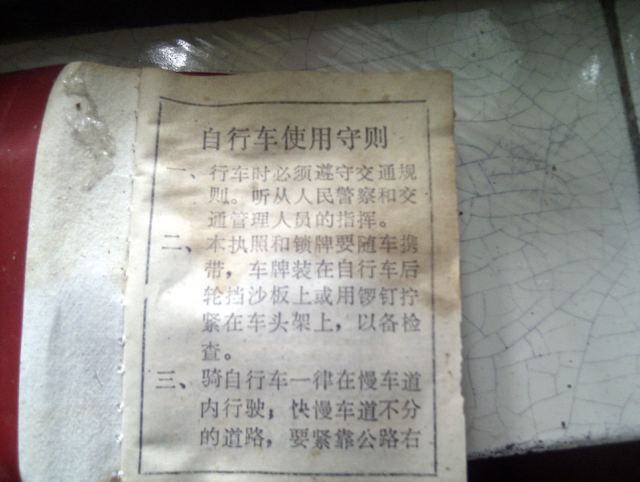 自行车使用守则
一、行车时必须遵守交通规
则。听从人民警察和交
通管理人员的指挥。
二、本执照和锁牌要随车携
带，车牌装在自行车后
轮挡沙板上或用锣钉拧
紧在车头架上，以备检
查。
三、骑自行车一律在慢车道
内行驶；快慢车道不分
的道路，要紧靠公路右